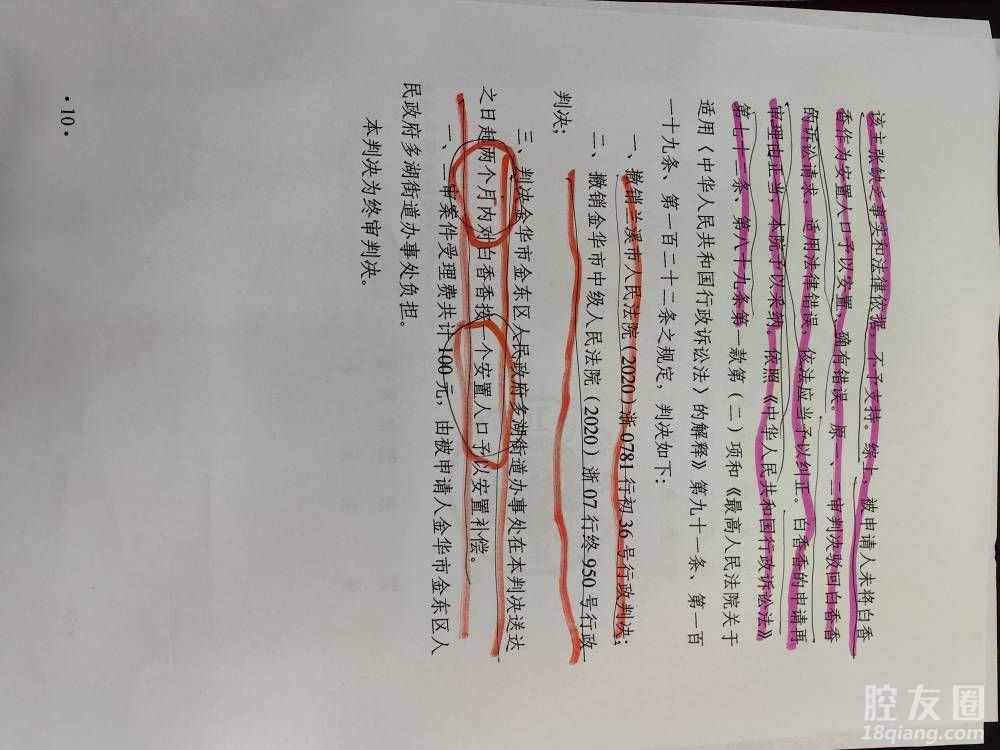 该主张缺乏事实和法律依据，不予支持。综上，被申请人未将白香
香作为安置人口予以安置，确有错误。原一、二审判决驳回白香香
的诉讼请求，适用法律错误，依法应当予以纠正。白香香的申请再
审理由正当，本院予以采纳。依照《中华人民共和国行政诉讼法》
第七十二条、第八十九条第一款第（二）项和《最高人民法院关于
适用〈中华人民共和国行政诉讼法〉的解释》第九十一条、第一百
一十九条、第一百二十二条之规定，判决如下：
一、撤销兰溪市人民法院（2020）浙0781行初36号行政判决；
二、撤销金华市中级人民法院（2020）浙07行终950号行政
判决；
三、判决金华市金东区人民政府多湖街道办事处在本判决送达
之日起两个月内对白香香按一个安置人口予以安置补偿。
一、二审案件受理费共计100元，由被申请人金华市金东区人
民政府多湖街道办事处负担。
本判决为终审判决。
·10·
腔友圈
18qiang.com